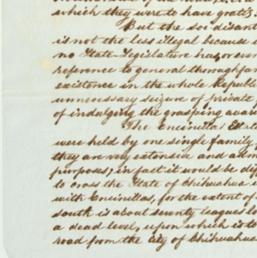 which they were to have gratis
But the so disant
is not the less illegal because
no State Legislature has, or ever
reference to general thoroughfare
existence in the whole Republic
unnecessary seizure of private
of indulging the grasping avar
The Encinillas Estate
were held by one single family
they are very extensive and adm
purposes; in fact it would be dif
to cross the State of Chihuahua
with Encinillas, for the extent of
south is about seventy leagues lo
a dead level, upon which is to
road from the City of Chihuahua